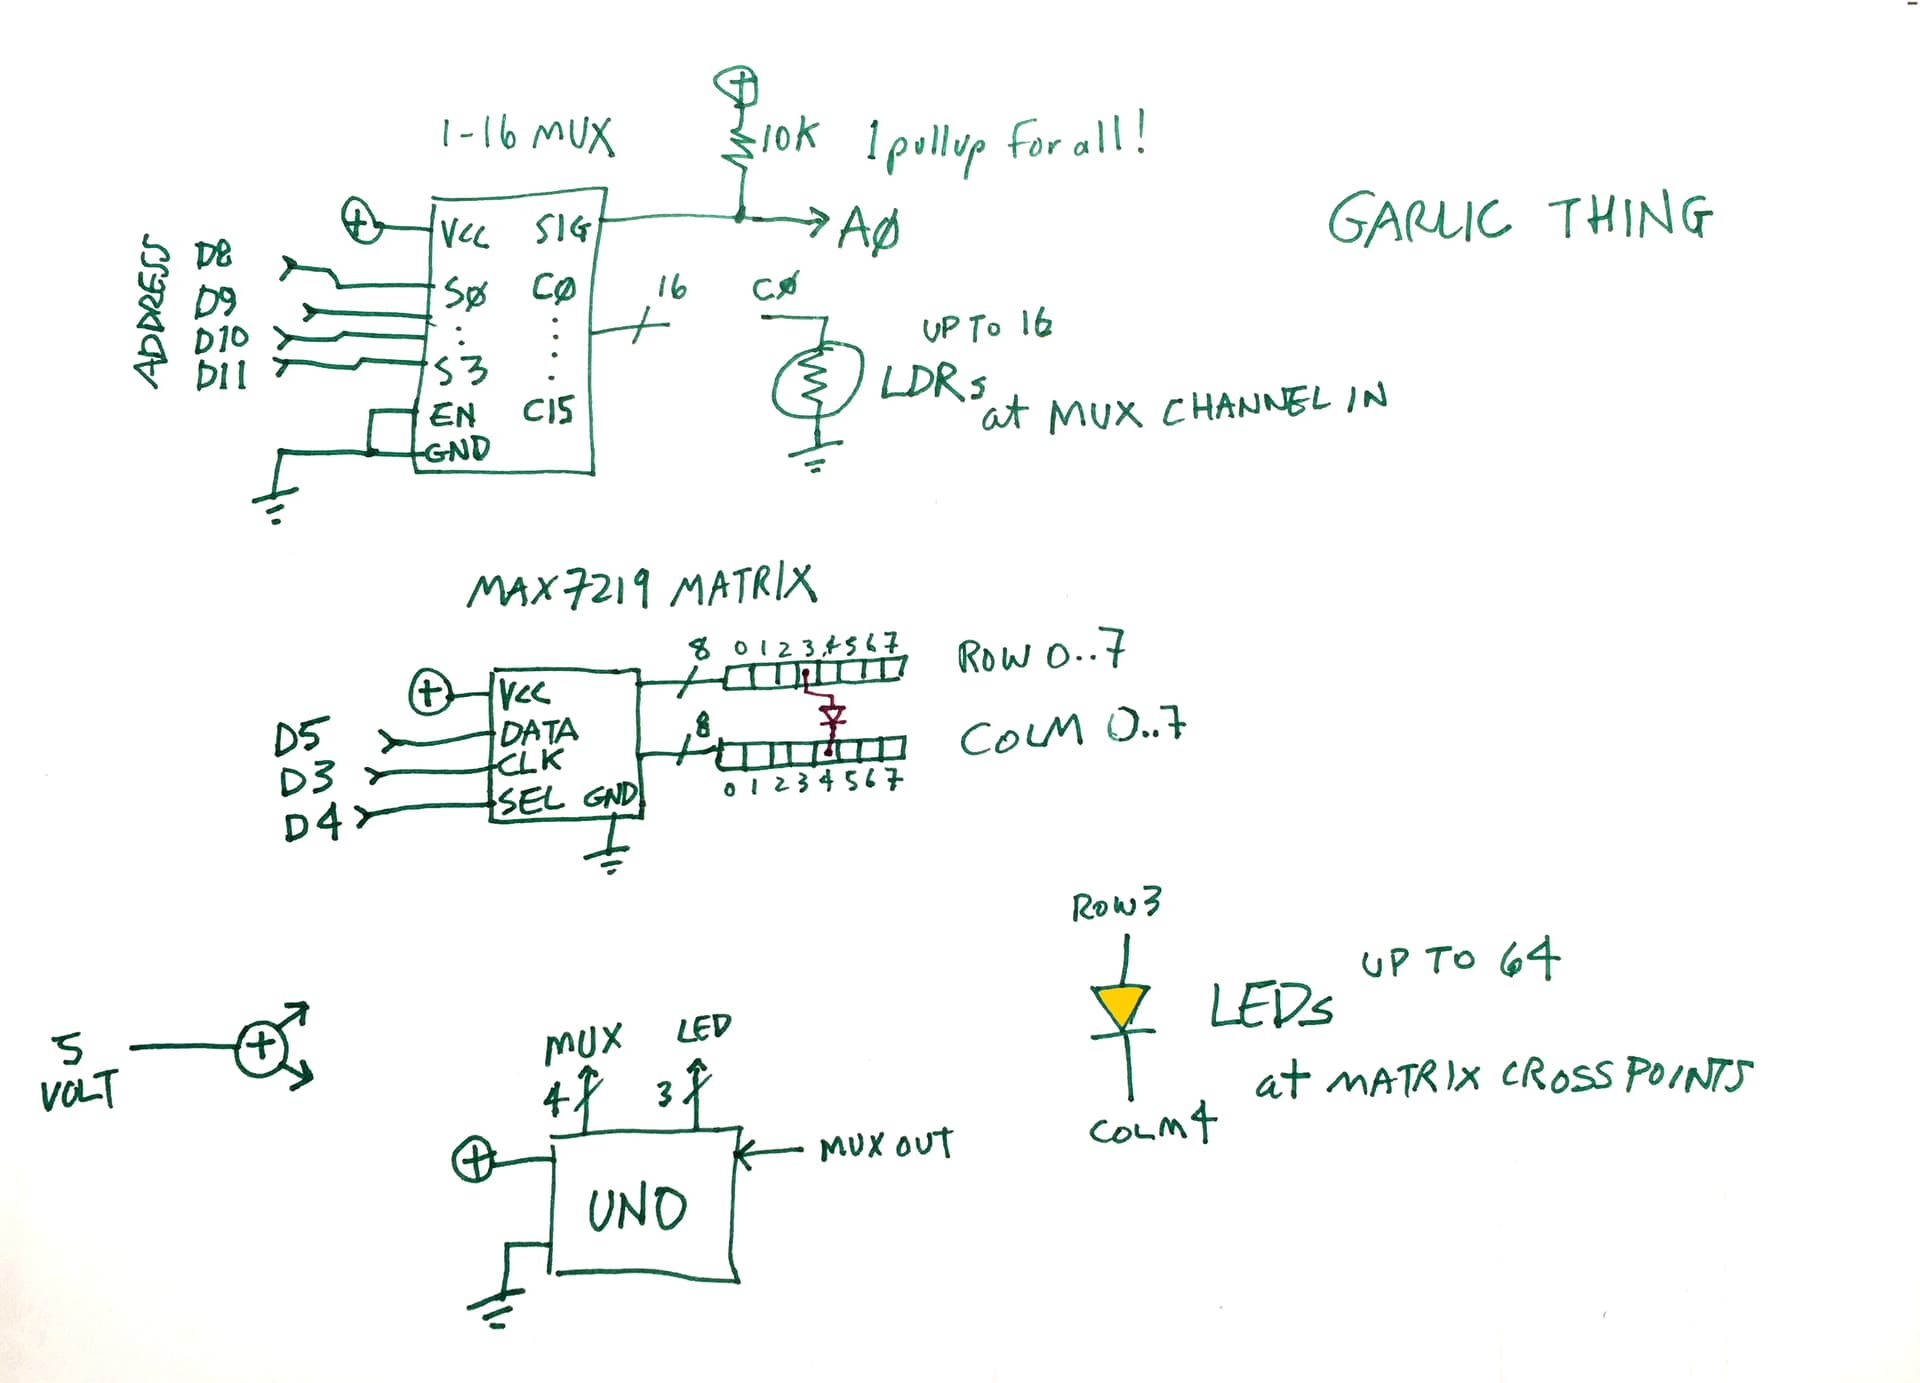 1-16 MUX
+
10K
1 pullup for all!
GARLIC THING
ADDRESS
D8
D9
D10
D11
+
VCC
SIG
A0
S0
C0
S3
EN
C15
GND
16
C0
UP TO 16
LDRs
at MUX CHANNEL IN
MAX7219 MATRIX
8
0 1 2 3 4 5 6 7
ROW 0..7
+
VCC
DATA
CLK
SEL
GND
D5
D3
D4
8
0 1 2 3 4 5 6 7
COLM 0..7
ROW3
LEDs
UP TO 64
at MATRIX CROSS POINTS
COLM4
5
VOLT
+
MUX
4
LED
3
+
UNO
MUX OUT